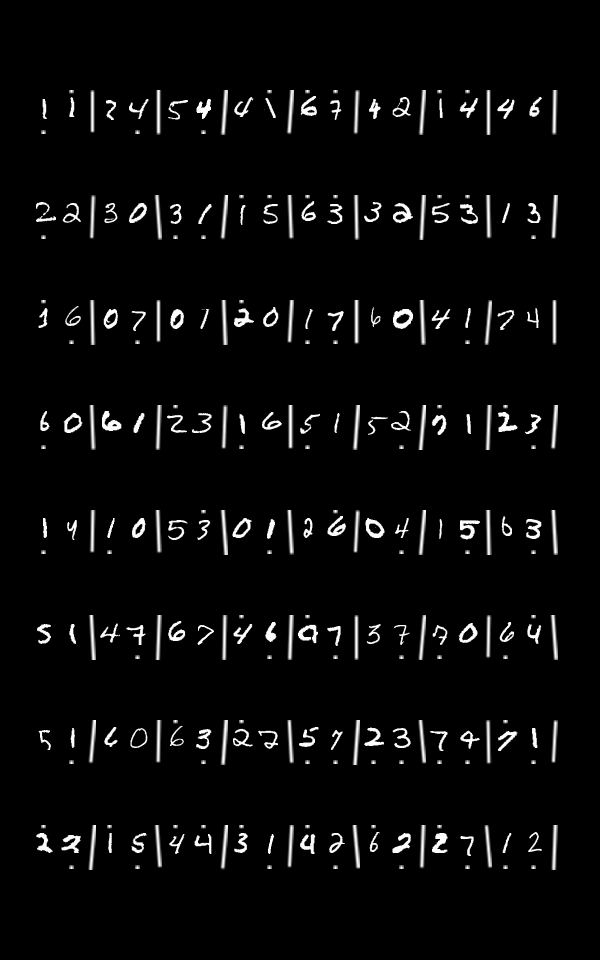 1 1 | 2 4 | 5 4 | 4 1 | 6 7 | 4 2 | 1 4 | 4 6 |
2 2 | 3 0 | 3 1 | 1 5 | 6 3 | 3 2 | 5 3 | 1 3 |
1 6 | 0 7 | 0 1 | 2 0 | 1 7 | 6 0 | 4 1 | 7 4 |
6 0 | 6 1 | 2 3 | 1 6 | 5 1 | 5 2 | 7 1 | 2 3 |
1 4 | 1 0 | 5 3 | 0 1 | 2 6 | 0 4 | 1 5 | 6 3 |
5 1 | 4 7 | 6 7 | 4 6 | 7 | 3 7 | 7 0 | 6 4 |
5 1 | 6 0 | 6 3 | 2 2 | 5 7 | 2 3 | 7 4 | 7 1 |
2 2 | 1 5 | 4 4 | 3 1 | 4 2 | 6 2 | 2 7 | 1 2 |